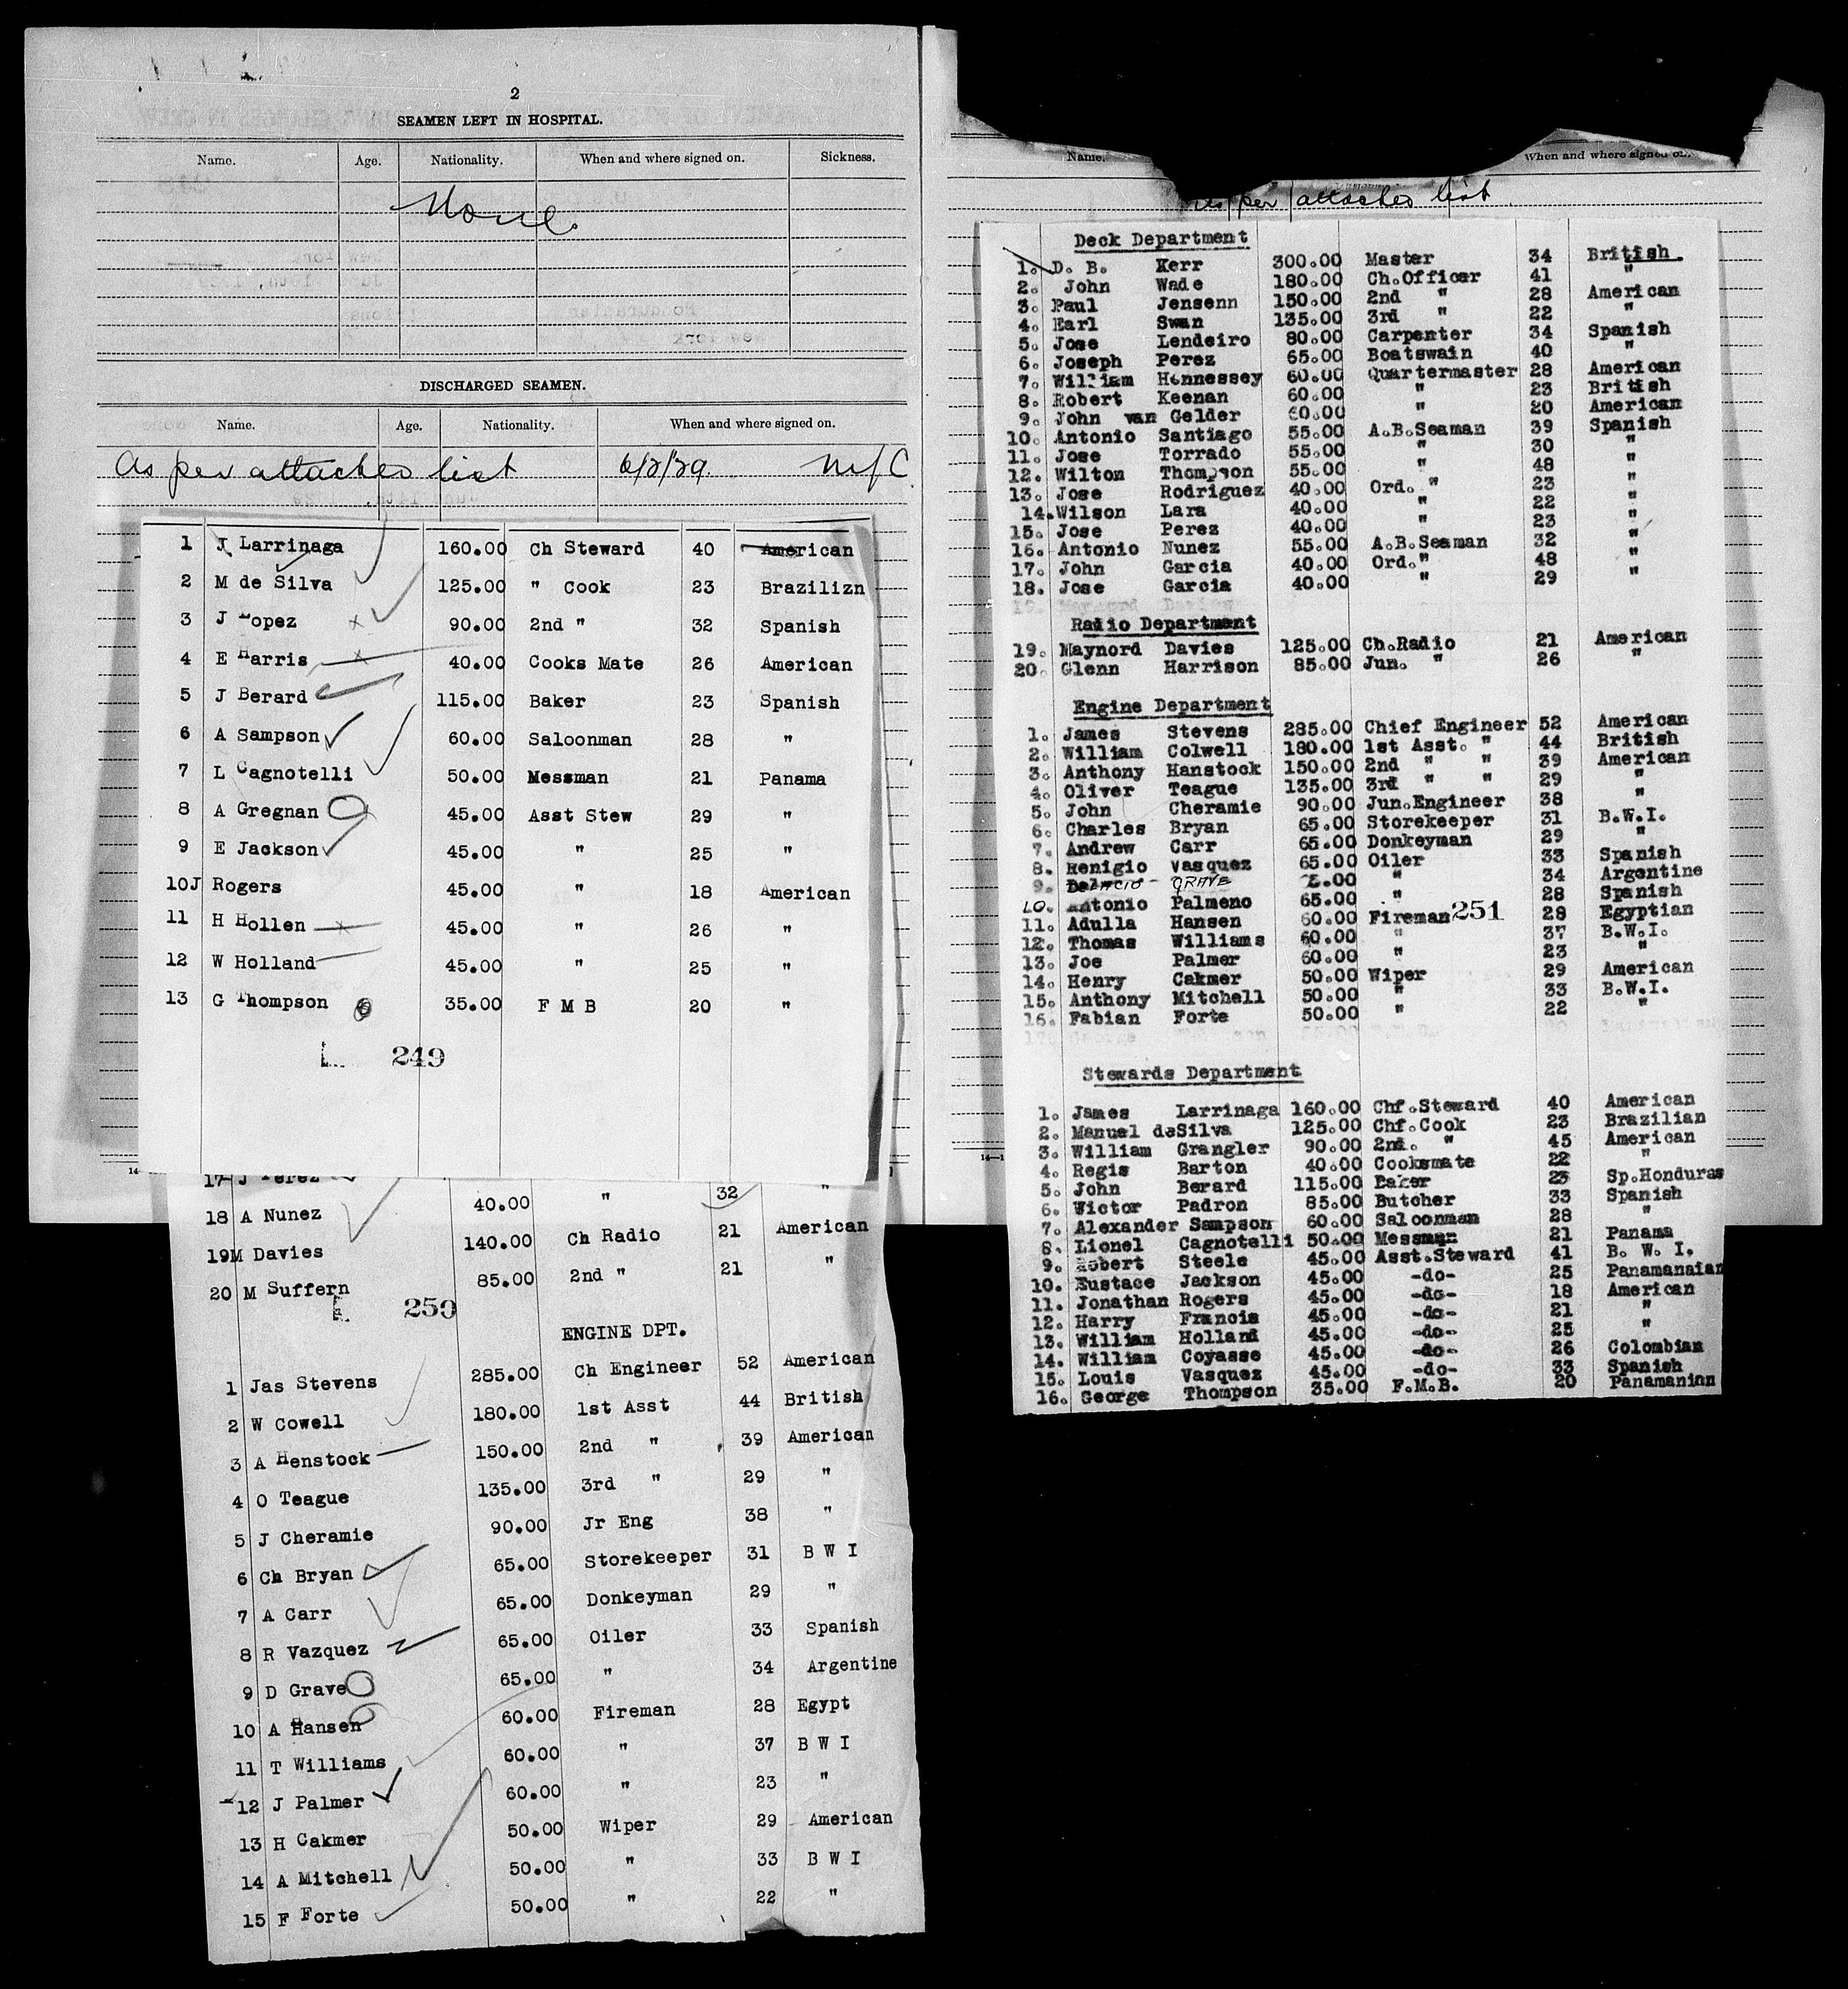 2
SEAMEN LEFT IN HOSPITAL.
Name. Age. Nationality. When and where signed on. Sickness.
None.
DISCHARGED SEAMEN.
Name. Age. Nationality. When and where signed on.
As per attached list 6/2/29. N.Y.C
1 J Larrinaga 160.00 Ch Steward 40 American
2 M de Silva 125.00 " Cook 23 Brazilizn
3 J Lopez 90.00 2nd " 32 Spanish
4 E Harris 40.00 Cooks Mate 26 American
5 J Berard 115.00 Baker 23 Spanish
6 A Sampson 60.00 Saloonman 28 "
7 L Cagnotelli 50.00 Messman 21 Panama
8 A Gregnan 45.00 Asst Stew 29 "
9 E Jackson 45.00 " 25 "
10 J Rogers 45.00 " 18 American
11 H Hollen 45.00 " 26 "
12 W Holland 45.00 " 25 "
13 G Thompson 35.00 F M B 20 "
249
17 J Perez "
18 A Nunez 40.00 " 32
19 M Davies 140.00 Ch Radio 21 American
20 M Suffern 85.00 2nd " 21 "
250
ENGINE DPT.
1 Jas Stevens 285.00 Ch Engineer 52 American
2 W Cowell 180.00 1st Asst 44 British
3 A Henstock 150.00 2nd " 39 American
4 O Teague 135.00 3rd " 29 "
5 J Cheramie 90.00 Jr Eng 38 "
6 Ch Bryan 65.00 Storekeeper 31 B W I
7 A Carr 65.00 Donkeyman 29 "
8 R Vazquez 65.00 Oiler 33 Spanish
9 D Grave 65.00 " 34 Argentine
10 A Hansen 60.00 Fireman 28 Egypt
11 T Williams 60.00 " 37 B W I
12 J Palmer 60.00 " 23 "
13 H Cakmer 50.00 Wiper 29 American
14 A Mitchell 50.00 " 33 B W I
15 F Forte 50.00 " 22 "
Name. When and where signed on.
As per attached list
Deck Department
1. D. B. Kerr 300.00 Master 34 British.
2. John Wade 180.00 Ch.Officer 41 "
3. Paul Jensenn 150.00 2nd " 28 American
4. Earl Swan 135.00 3rd " 22 "
5. Jose Lendeiro 80.00 Carpenter 34 Spanish
6. Joseph Perez 65.00 Boatswain 40 "
7. William Hennessey 60.00 Quartermaster 28 American
8. Robert Keenan 60.00 " 23 British
9. John van Gelder 60.00 " 20 American
10. Antonio Santiago 55.00 A.B.Seaman 39 Spanish
11. Jose Torrado 55.00 " 30 "
12. Wilton Thompson 55.00 " 48 "
13. Jose Rodriguez 40.00 Ord. " 23 "
14. Wilson Lara 40.00 " 22 "
15. Jose Perez 40.00 " 23 "
16. Antonio Nunez 55.00 A.B.Seaman 32 "
17. John Garcia 40.00 Ord." 48 "
18. Jose Garcia 40.00 " 29 "
19. Maynord Davies
Radio Department
19. Maynord Davies 125.00 Ch.Radio 21 American
20. Glenn Harrison 85.00 Jun. " 26 "
Engine Department
1. James Stevens 285.00 Chief Engineer 52 American
2. William Colwell 180.00 1st Asst. " 44 British
3. Anthony Hanstock 150.00 2nd " " 39 American
4. Oliver Teague 135.00 3rd " " 29 "
5. John Cheramie 90.00 Jun.Engineer 38 "
6. Charles Bryan 65.00 Storekeeper 31 B.W.I.
7. Andrew Carr 65.00 Donkeyman 29 "
8. Renigio Vasquez 65.00 Oiler 33 Spanish
9. GRAVE " 34 Argentine
10. Antonio Palmeno 65.00 " 28 Spanish
11. Adulla Hansen 60.00 Fireman 251 28 Egyptian
12. Thomas Williams 60.00 " 37 B.W.I.
13. Joe Palmer 60.00 " 23 "
14. Henry Cakmer 50.00 Wiper 29 American
15. Anthony Mitchell 50.00 " 33 B.W.I.
16. Fabian Forte 50.00 " 22 "
Stewards Department
1. James Larrinaga 160.00 Chf.Steward 40 American
2. Manuel deSilva 125.00 Chf.Cook 23 Brazilian
3. William Grangler 90.00 2nd. " 45 American
4. Regis Barton 40.00 Cooksmate 22 "
5. John Berard 115.00 Baker 23 Sp.Honduras
6. Victor Padron 85.00 Butcher 33 Spanish
7. Alexander Sampson 60.00 Saloonman 28 "
8. Lionel Cagnotelli 50.00 Messman 21 Panama
9. Robert Steele 45.00 Asst.Steward 41 B. W. I.
10. Eustace Jackson 45.00 -do- 25 Panamanaian
11. Jonathan Rogers 45.00 -do- 18 American
12. Harry Francis 45.00 -do- 21 "
13. William Holland 45.00 -do- 25 "
14. William Coyasse 45.00 -do- 26 Colombian
15. Louis Vasquez 45.00 -do- 33 Spanish
16. George Thompson 35.00 F.M.B. 20 Panamanian